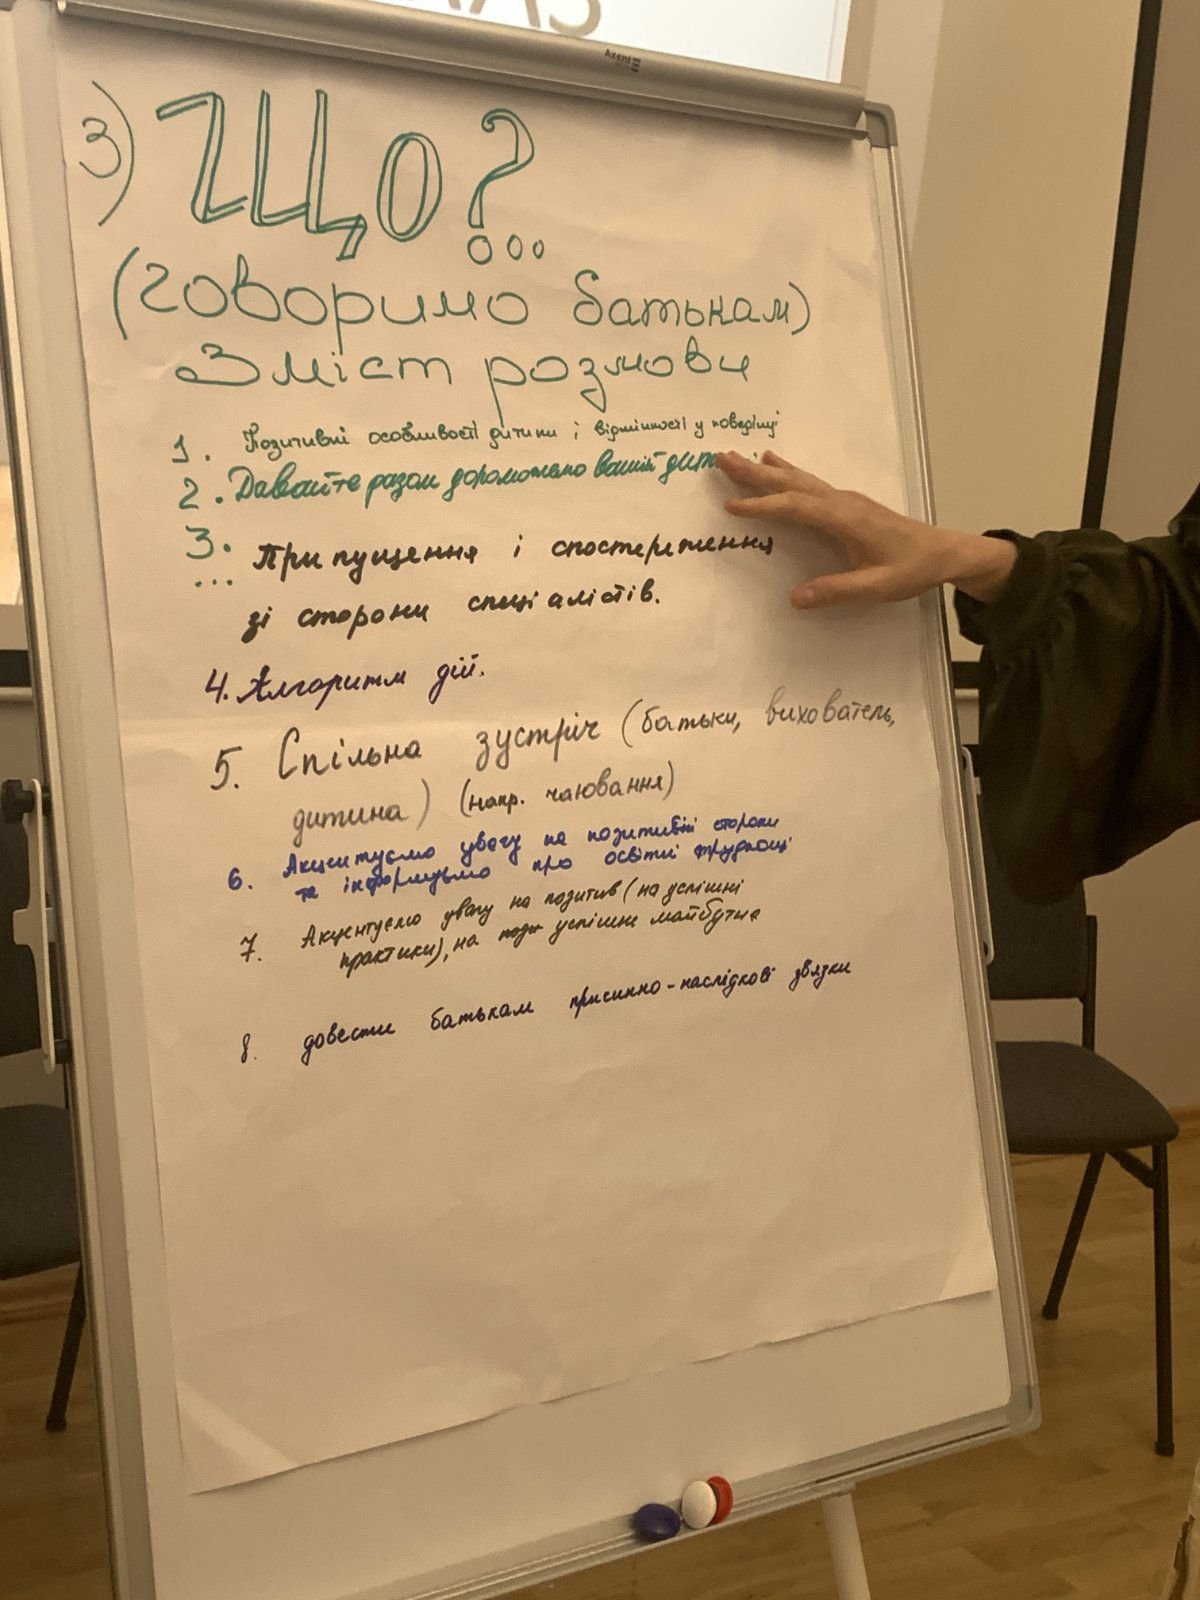 Axent
3) ЩО?...
(говоримо батькам)
Зміст розмови
1. Позитивні особливості дитини і відмінності у поведінці
2. Давайте разом допоможемо вашій
3. Припущення і спостереження
...
зі сторони спеціалістів.
4. Алгоритм дій.
5. Спільна зустріч (батьки, вихователь,
дитина) (напр. чаювання)
6. Акцентуємо увагу на позитивні сторони
та інформуємо про освітні труднощі
7. Акцентуємо увагу на позитив (на успішні
практики), на успішне майбутнє
8. довести батькам присинно-наслідкові звязки